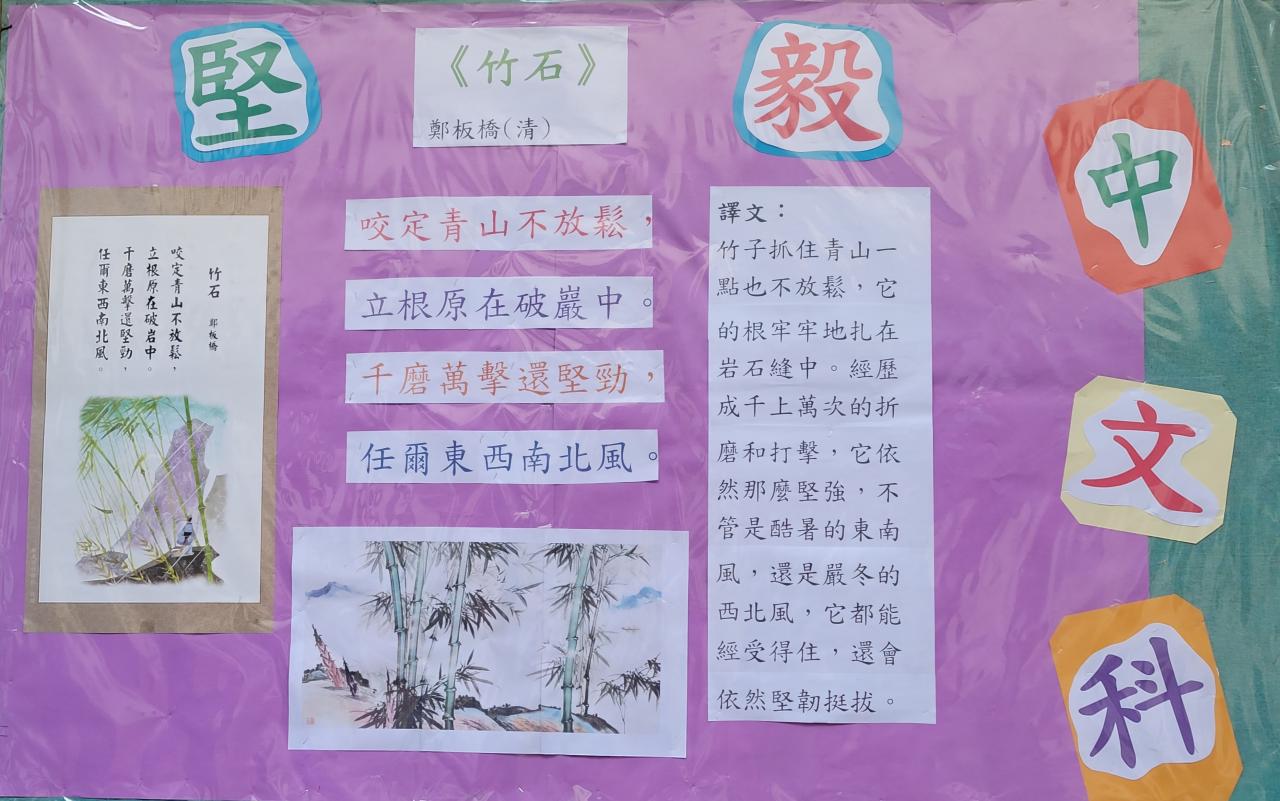 堅
《竹石》
鄭板橋(清)
毅
竹石 鄭板橋
咬定青山不放鬆，
立根原在破岩中。
千磨萬擊還堅勁，
任爾東西南北風。
咬定青山不放鬆，
立根原在破巖中。
千磨萬擊還堅勁，
任爾東西南北風。
譯文：
竹子抓住青山一
點也不放鬆，它
的根牢牢地扎在
岩石縫中。經歷
成千上萬次的折
磨和打擊，它依
然那麼堅強，不
管是酷暑的東南
風，還是嚴冬的
西北風，它都能
經受得住，還會
依然堅韌挺拔。
中
文
科